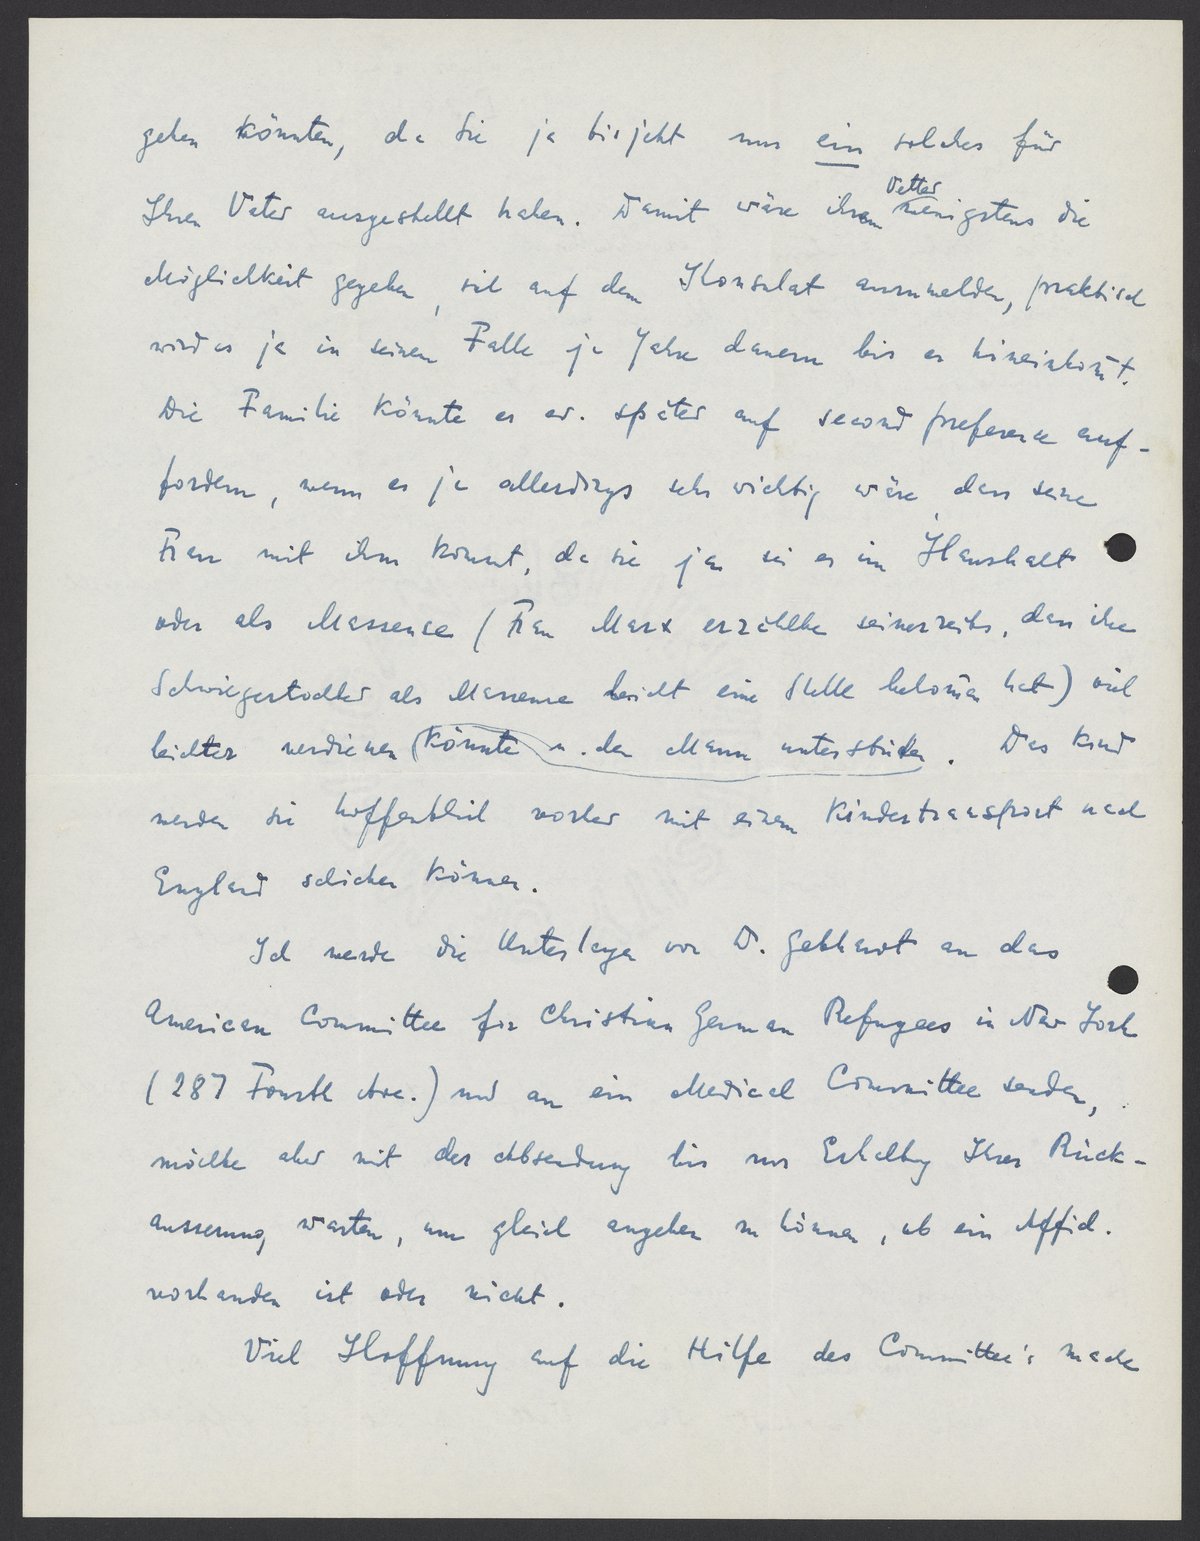 geben könnten, da Sie ja bisjetzt nur ein solches für
Ihren Vater ausgestellt haben. Damit wäre ihrem Vetter wenigstens die
Möglichkeit gegeben, sich auf dem Konsulat anzumelden, praktisch
wird es ja in seinem Falle ja Jahre dauern bis er hineinkom̄t.
Die Familie könnte er ev. später auf second preference auf-
fordern, wenn es ja allerdings sehr wichtig wäre, dass seine
Frau mit ihm kommt, da sie ja sei es im Haushalt
oder als Masseuse (Frau Marx erzählte seinerzeits, dass ihre
Schwiegertochter als Masseuse leicht eine Stelle bekom̄en hat) viel
leichter verdienen (könnte u. den Mann unterstützen. Das Kind
werden sie hoffentlich vorher mit einem Kindertransport nach
England schicken können.
Ich werde die Unterlagen von D. Gebhardt an das
American Committee for Christian German Refugees in New York
(287 Fourth Ave.) und an ein Medical Committee senden,
möchte aber mit der Absendung bis zur Erhaltung Ihrer Rück-
äusserung warten, um gleich angeben zu können, ob ein Affid.
vorhanden ist oder nicht.
Viel Hoffnung auf die Hilfe des Committee's mache